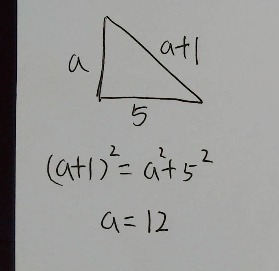 a a+1
5
(a+1)² = a² + 5²
a = 12